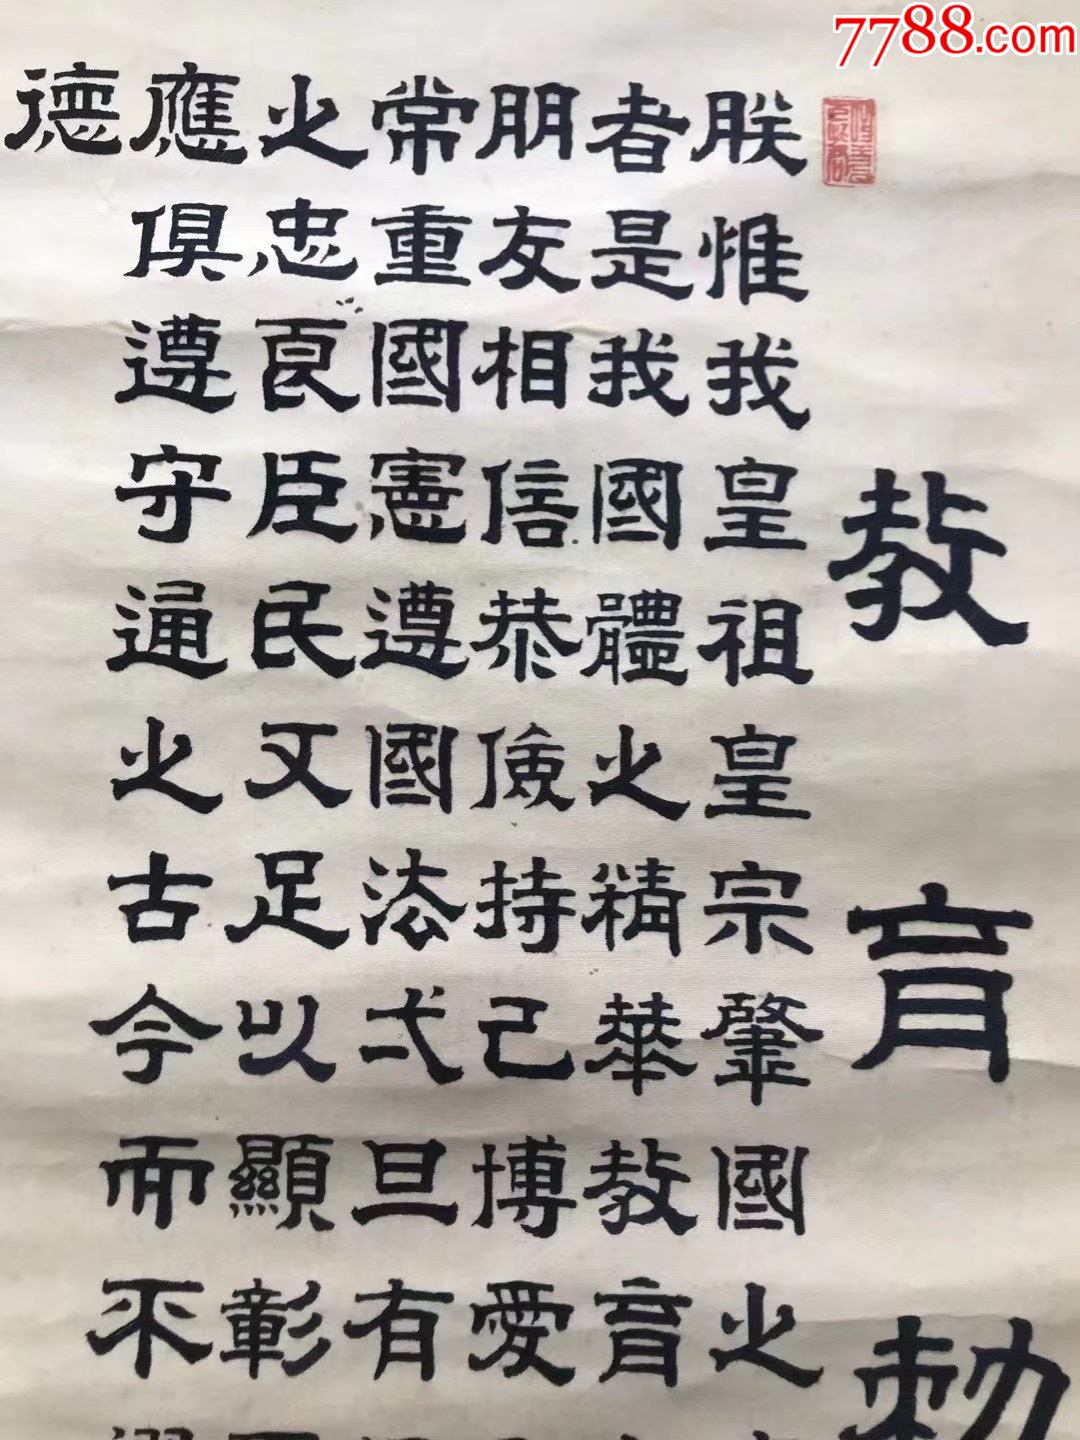 7788.com
教育勅
朕惟我皇祖皇宗肇國之
者是我國體之精華教育
朋友相信恭儉持己博愛
常重國憲遵國法弌旦有
之忠良臣民文足以顯彰
應俱遵守通之古今而不
德